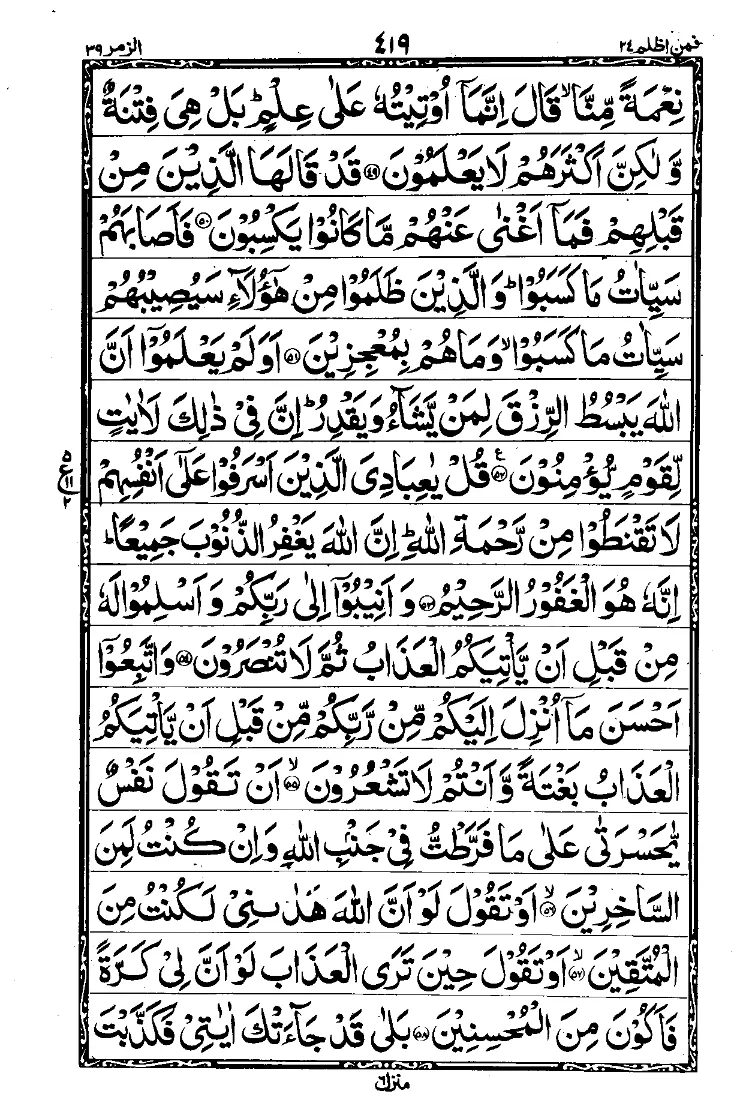 فمن اظلم ٢٤ ٤١٩ الزمر ٣٩
نِعۡمَةً مِّنَّا ۙ قَالَ اِنَّمَاۤ اُوۡتِيۡتُهٗ عَلٰى عِلۡمٍ ؕ بَلۡ هِىَ فِتۡنَةٌ
وَّلٰكِنَّ اَكۡثَرَهُمۡ لَا يَعۡلَمُوۡنَ ﴿٤٩﴾ قَدۡ قَالَهَا الَّذِيۡنَ مِنۡ
قَبۡلِهِمۡ فَمَاۤ اَغۡنٰى عَنۡهُمۡ مَّا كَانُوۡا يَكۡسِبُوۡنَ ﴿٥٠﴾ فَاَصَابَهُمۡ
سَيِّاٰتُ مَا كَسَبُوۡا ؕ وَالَّذِيۡنَ ظَلَمُوۡا مِنۡ هٰٓؤُلَاۤءِ سَيُصِيۡبُهُمۡ
سَيِّاٰتُ مَا كَسَبُوۡا ۙ وَمَا هُمۡ بِمُعۡجِزِيۡنَ ﴿٥١﴾ اَوَلَمۡ يَعۡلَمُوۡۤا اَنَّ
اللّٰهَ يَبۡسُطُ الرِّزۡقَ لِمَنۡ يَّشَآءُ وَيَقۡدِرُ ؕ اِنَّ فِىۡ ذٰلِكَ لَاٰيٰتٍ
لِّقَوۡمٍ يُّؤۡمِنُوۡنَ ﴿٥٢﴾ ع قُلۡ يٰعِبَادِىَ الَّذِيۡنَ اَسۡرَفُوۡا عَلٰٓى اَنۡفُسِهِمۡ
٥
ع ١١
٢
لَا تَقۡنَطُوۡا مِنۡ رَّحۡمَةِ اللّٰهِ ؕ اِنَّ اللّٰهَ يَغۡفِرُ الذُّنُوۡبَ جَمِيۡعًا ؕ
اِنَّهٗ هُوَ الۡغَفُوۡرُ الرَّحِيۡمُ ﴿٥٣﴾ وَاَنِيۡبُوۡۤا اِلٰى رَبِّكُمۡ وَاَسۡلِمُوۡا لَهٗ
مِنۡ قَبۡلِ اَنۡ يَّاۡتِيَكُمُ الۡعَذَابُ ثُمَّ لَا تُنۡصَرُوۡنَ ﴿٥٤﴾ وَاتَّبِعُوۡۤا
اَحۡسَنَ مَاۤ اُنۡزِلَ اِلَيۡكُمۡ مِّنۡ رَّبِّكُمۡ مِّنۡ قَبۡلِ اَنۡ يَّاۡتِيَكُمُ
الۡعَذَابُ بَغۡتَةً وَّاَنۡتُمۡ لَا تَشۡعُرُوۡنَ ۙ﴿٥٥﴾ اَنۡ تَقُوۡلَ نَفۡسٌ
يّٰحَسۡرَتٰى عَلٰى مَا فَرَّطۡتُّ فِىۡ جَنۡۢبِ اللّٰهِ وَاِنۡ كُنۡتُ لَمِنَ
السَّاخِرِيۡنَ ۙ﴿٥٦﴾ اَوۡ تَقُوۡلَ لَوۡ اَنَّ اللّٰهَ هَدٰٮنِىۡ لَكُنۡتُ مِنَ
الۡمُتَّقِيۡنَ ۙ﴿٥٧﴾ اَوۡ تَقُوۡلَ حِيۡنَ تَرَى الۡعَذَابَ لَوۡ اَنَّ لِىۡ كَرَّةً
فَاَكُوۡنَ مِنَ الۡمُحۡسِنِيۡنَ ﴿٥٨﴾ بَلٰى قَدۡ جَآءَتۡكَ اٰيٰتِىۡ فَكَذَّبۡتَ
منزل٦